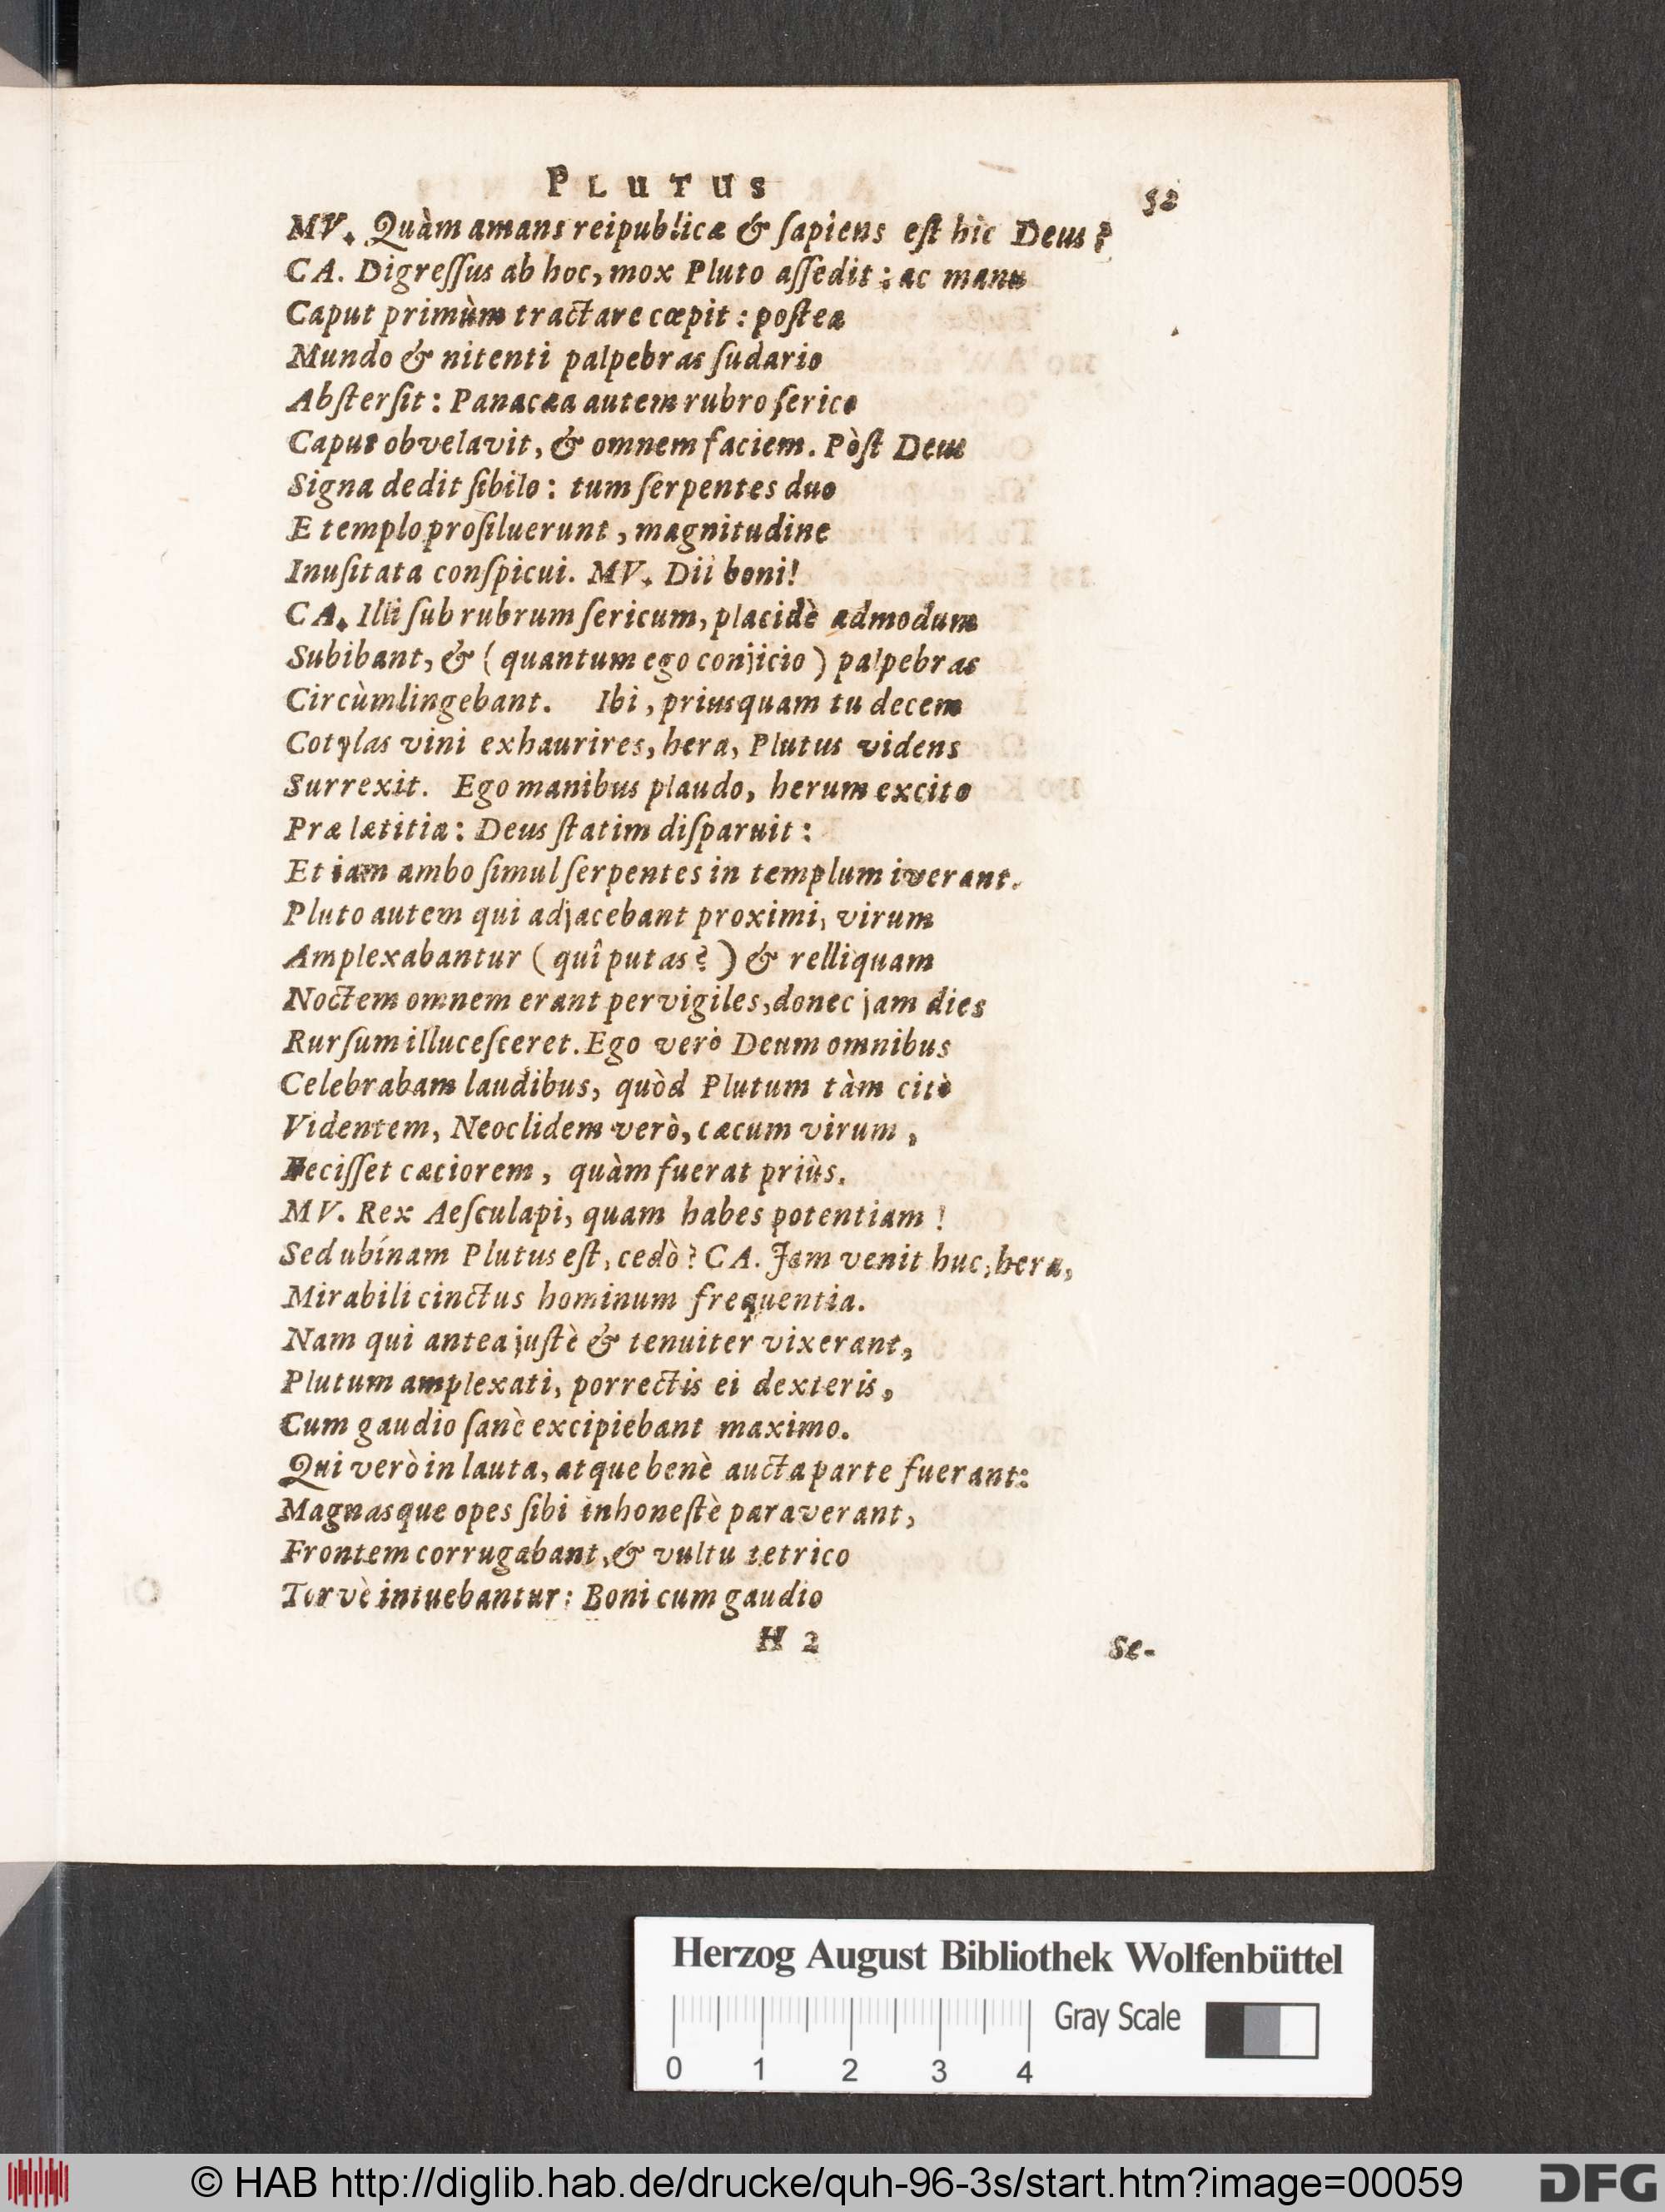 PLUTUS
52
MV. Quàm amans reipublicæ & ſapiens eſt hic Deus?
CA. Digreſſus ab hoc, mox Pluto aſſedit: ac manu
Caput primùm tractare cœpit: poſtea
Mundo & nitenti palpebras ſudario
Abſterſit: Panacæa autem rubro ſerico
Caput obvelavit, & omnem faciem. Pòſt Deus
Signa dedit ſibilo: tum ſerpentes duo
E templo proſiluerunt, magnitudine
Inuſitata conſpicui. MV. Dii boni!
CA. Illi ſub rubrum ſericum, placidè admodum
Subibant, & (quantum ego conjicio) palpebras
Circùmlingebant. Ibi, priusquam tu decem
Cotylas vini exhaurires, hera, Plutus videns
Surrexit. Ego manibus plaudo, herum excito
Præ lætitia: Deus ſtatim diſparuit:
Et iam ambo ſimul ſerpentes in templum iverant.
Pluto autem qui adjacebant proximi, virum
Amplexabantur (quî putas?) & relliquam
Noctem omnem erant pervigiles, donec jam dies
Rurſum illuceſceret. Ego verò Deum omnibus
Celebrabam laudibus, quòd Plutum tàm citò
Videntem, Neoclidem verò, cæcum virum,
Feciſſet cæciorem, quàm fuerat priùs.
MV. Rex Aeſculapi, quam habes potentiam!
Sed ubínam Plutus eſt, cedò? CA. Jam venit huc, hera,
Mirabili cinctus hominum frequentia.
Nam qui antea juſtè & tenuiter vixerant,
Plutum amplexati, porrectis ei dexteris,
Cum gaudio ſanè excipiebant maximo.
Qui verò in lauta, atque benè aucta parte fuerant:
Magnasque opes ſibi inhoneſtè paraverant,
Frontem corrugabant, & vultu tetrico
Torvè intuebantur: Boni cum gaudio
H 2
Se-
Herzog August Bibliothek Wolfenbüttel
0 1 2 3 4
Gray Scale
© HAB http://diglib.hab.de/drucke/quh-96-3s/start.htm?image=00059
DFG